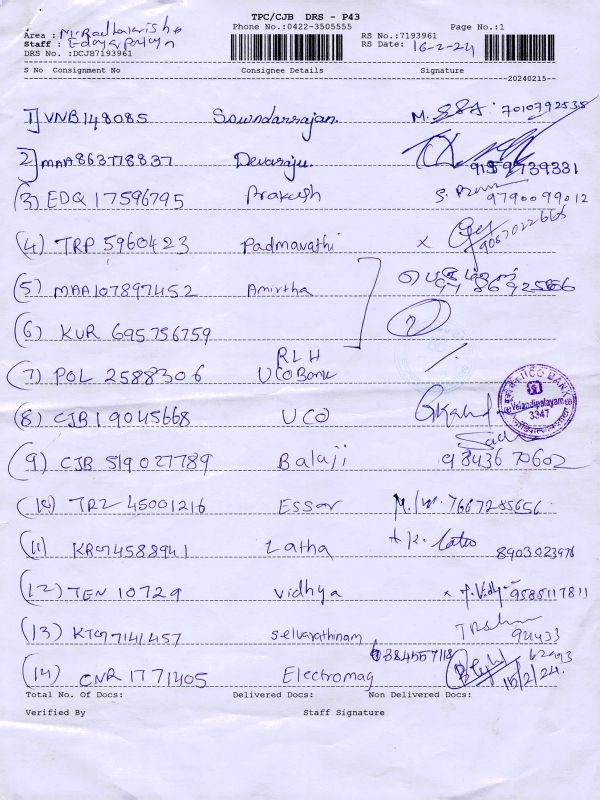 TPC/CJB DRS - P43
Area : Mr Radhakrishna Phone No.:0422-3505555 Page No.:1
Staff : Edayarpalayam RS No.:7193961
DRS No. :DCJB7193961 RS Date: 16-2-24
S No Consignment No Consignee Details Signature
20240215--
1) VNB148085 Sowndarrajan. M. 7010792535
2) MAA863778837 Devaraju. 9159739331
(3) EDQ 17596795 Prakash 9790099012
(4) TRP 5960423 Padmavathi x 9087022666
(5) MAA107897452 Amirtha
(6) KUR 695756759 7
(7) POL 2588306 RLH UCO Bank
(8) CJB19045668 UCO
UCO BANK
Velandipalayam
3347
(9) CJB 519027789 Balaji 9843670602
(10) TRZ 45001216 Essar 7667285656
(11) KRG74588941 Latha 8903023976
(12) TEN 10729 Vidhya x J. Vidhy 9585117811
(13) KTG77141457 Selvarathinam 9384557118
(14) CNR 1771405 Electromag 15/2/24.
Total No. Of Docs: Delivered Docs: Non Delivered Docs:
Verified By Staff Signature